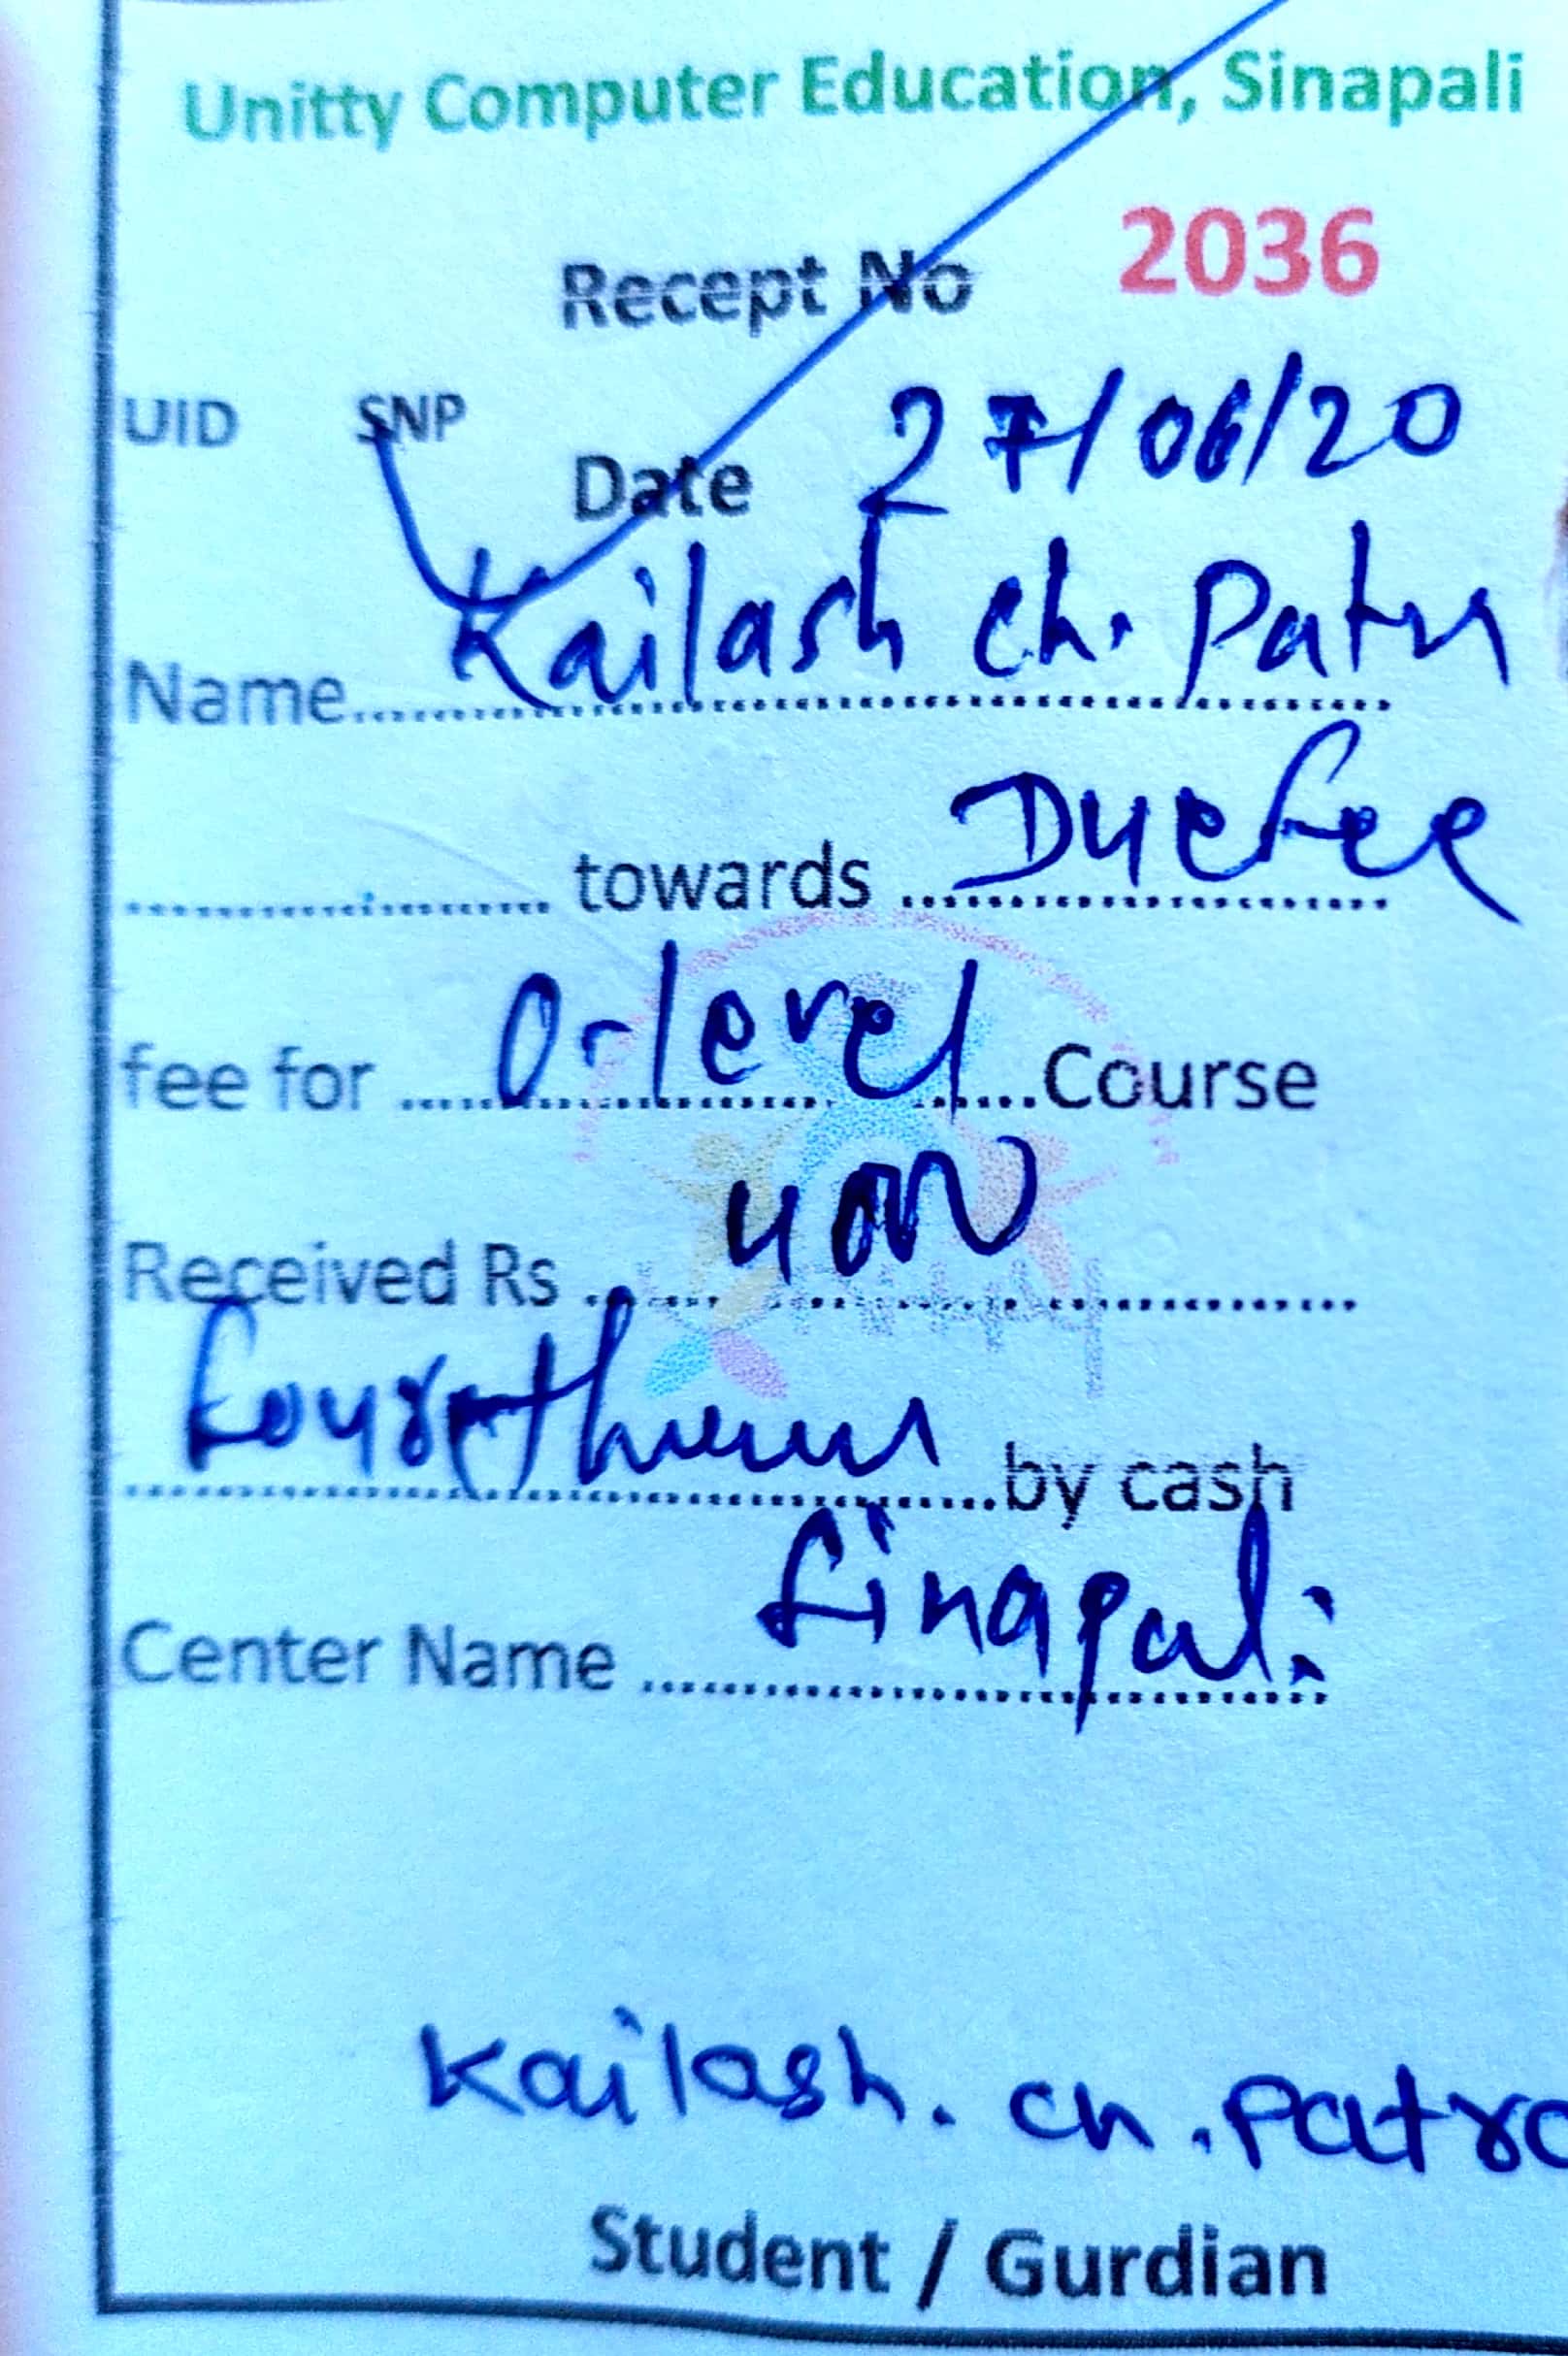 Unitty Computer Education, Sinapali
Recept No 2036
UID SNP
Date 27/06/20
Name Kailash Ch. Patra
towards Due fee
fee for O-level Course
Received Rs 4000
by cash
Center Name Sinapali
Unitty
Kailash. ch. Patra
Student / Gurdian